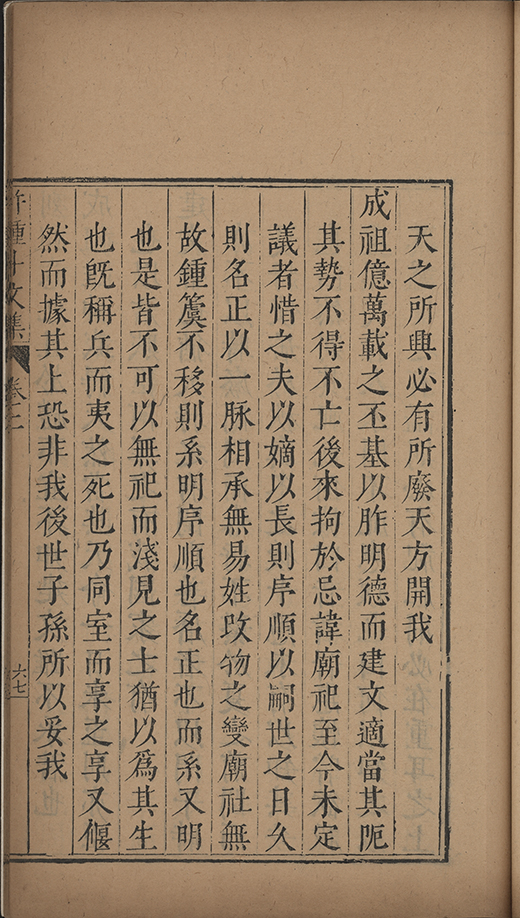 天之所興必有所廢天方開我
成祖億萬載之丕基以胙明德而建文適當其阨
其勢不得不亡後來拘於忌諱廟祀至今未定
議者惜之夫以嫡以長則序順以嗣世之日久
則名正以一脉相承無易姓攺物之變廟社無
故鍾簴不移則系明序順也名正也而系又明
也是皆不可以無祀而淺見之士猶以爲其生
也旣稱兵而夷之死也乃同室而享之享又偃
然而據其上恐非我後世子孫所以妥我
許鍾斗文集
卷二
六七